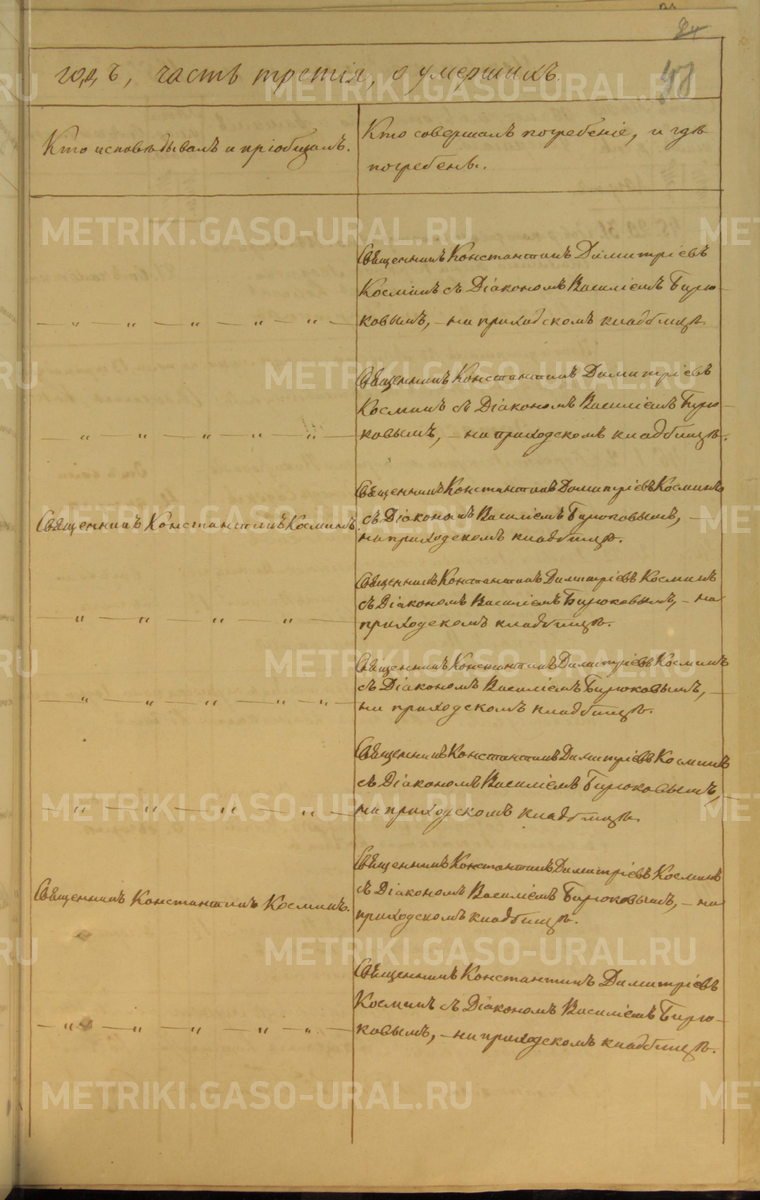 48
годъ, часть третія, о умершихъ.
Кто исповѣдывалъ и пріобщалъ.
Кто совершалъ погребеніе, и гдѣ
погребенъ.
Священникъ Константинъ Димитріевъ
Косминъ съ Діакономъ Василіемъ Бирю-
— „ — „ — „ — „ — „ — ковымъ, — на приходскомъ кладбищѣ.
Священникъ Константинъ Димитріевъ
Косминъ съ Діакономъ Василіемъ Бирю-
— „ — „ — „ — „ — „ — ковымъ, — на приходскомъ кладбищѣ.
Священникъ Константинъ Димитріевъ Косминъ
Священникъ Константинъ Косминъ. съ Діакономъ Василіемъ Бирюковымъ, —
на приходскомъ кладбищѣ.
Священникъ Константинъ Димитріевъ Косминъ
съ Діакономъ Василіемъ Бирюковымъ, — на
— „ — „ — „ — „ — приходскомъ кладбищѣ.
Священникъ Константинъ Димитріевъ Косминъ
съ Діакономъ Василіемъ Бирюковымъ, —
— „ — „ — „ — „ — „ — на приходскомъ кладбищѣ.
Священникъ Константинъ Димитріевъ Косминъ
съ Діакономъ Василіемъ Бирюковымъ, —
— „ — „ — „ — „ — „ — на приходскомъ кладбищѣ.
Священникъ Константинъ Димитріевъ Косминъ
Священникъ Константинъ Косминъ. съ Діакономъ Василіемъ Бирюковымъ, — на
приходскомъ кладбищѣ.
Священникъ Константинъ Димитріевъ
Косминъ съ Діакономъ Василіемъ Бирю-
— „ — „ — „ — „ — „ — ковымъ, — на приходскомъ кладбищѣ.
METRIKI.GASO-URAL.RU